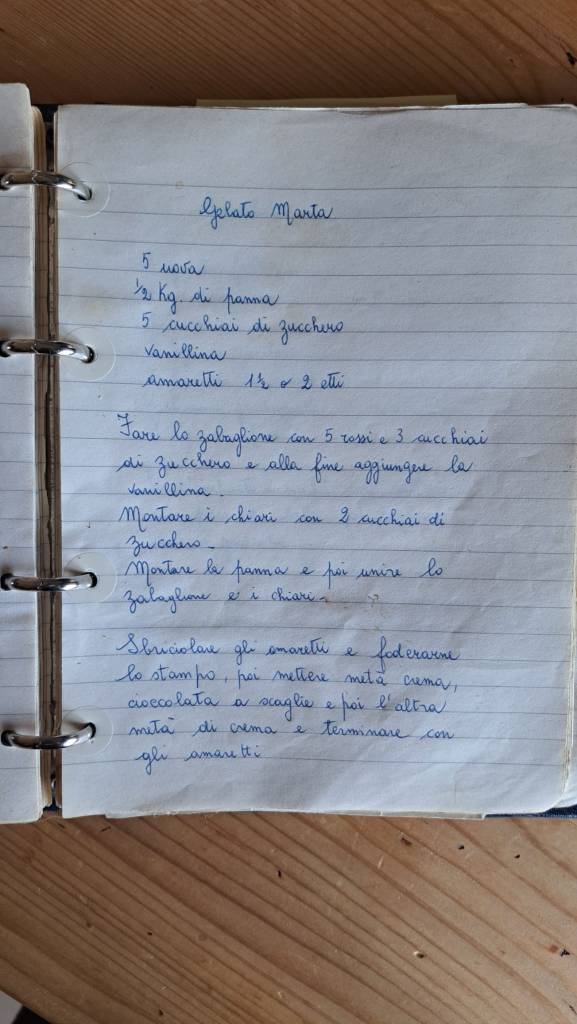 Gelato Marta
5 uova
½ Kg. di panna
5 cucchiai di zucchero
vanillina
amaretti 1½ o 2 etti
Fare lo zabaglione con 5 rossi e 3 cucchiai
di zucchero e alla fine aggiungere la
vanillina.
Montare i chiari con 2 cucchiai di
zucchero.
Montare la panna e poi unire lo
zabaglione e i chiari.
Sbriciolare gli amaretti e foderarne
lo stampo, poi mettere metà crema,
cioccolata a scaglie e poi l'altra
metà di crema e terminare con
gli amaretti